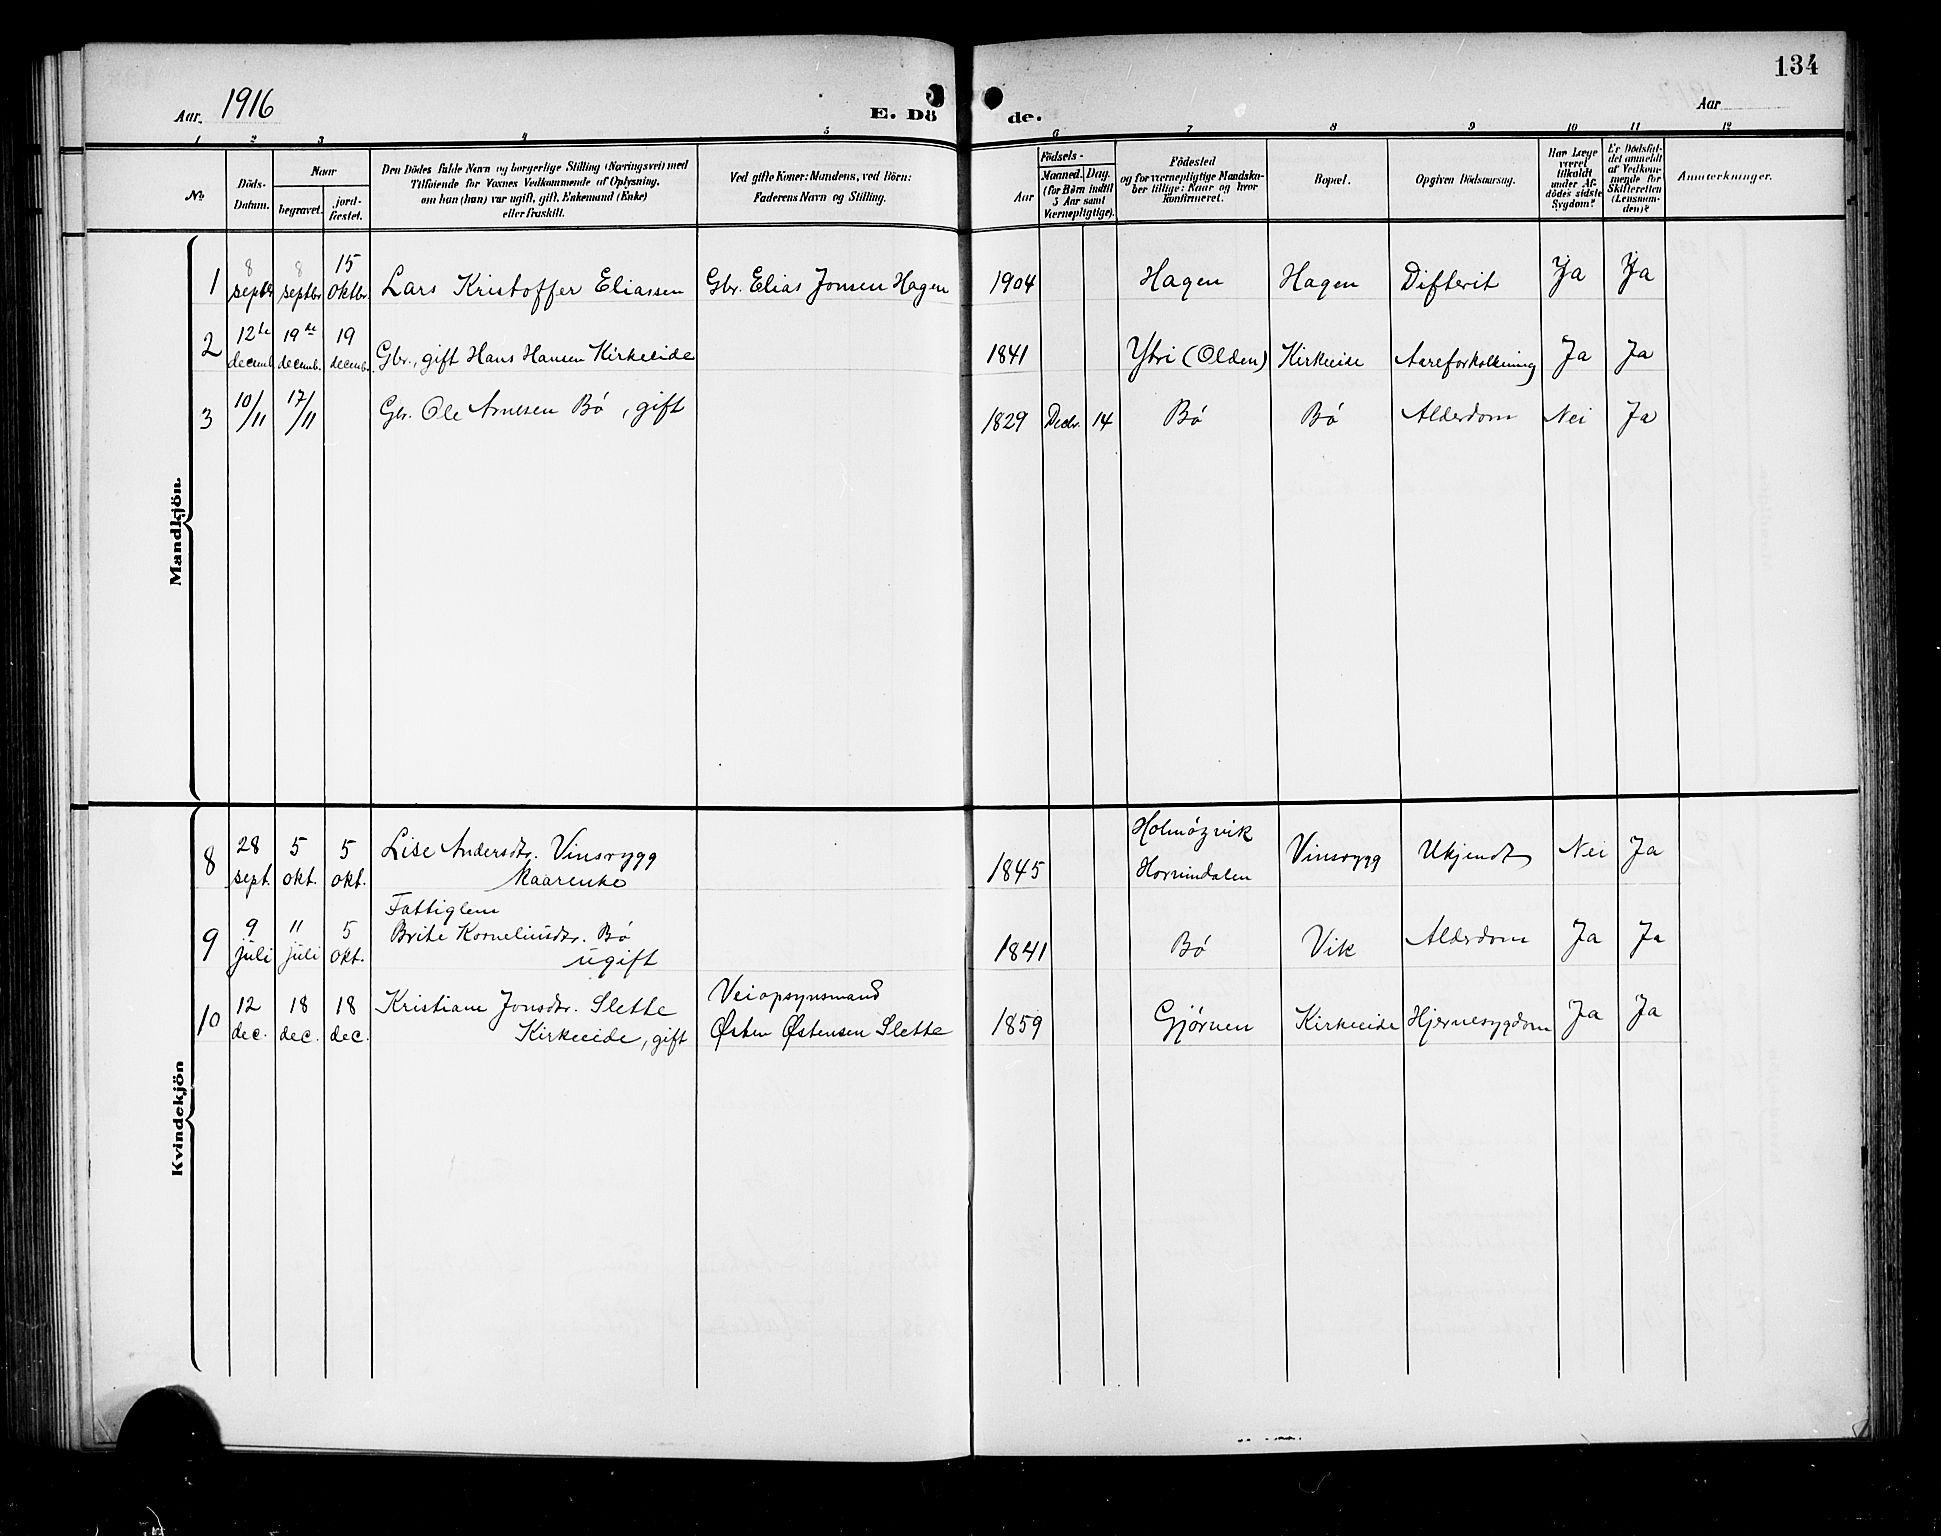 134
Aar. 1916
E. Dö de.
Aar
1 2 3 4 5 6 7 8 9 10 11 12
No.
Döds-
Datum.
Naar
begravet.
jord-
fæstet.
Den Dödes fulde Navn og borgerlige Stilling (Næringsvei) med
Tilföiende for Voxnes Vedkommende af Oplysning,
om han (hun) var ugift, gift, Enkemand (Enke)
eller fraskilt.
Ved gifte Koner: Mandens, ved Börn:
Faderens Navn og Stilling.
Födsels-
Aar
Maaned. Dag.
(for Börn indtil
5 Aar samt
Værnepligtige).
Födested
og for værnepligtige Mandska-
ber tillige: Naar og hvor
konfirmeret.
Bopæl.
Opgiven Dödsaarsag.
Har Læge
været
tilkaldt
under Af-
dödes sidste
Sygdom?
Er Dödsfal-
det anmeldt
af Vedkom-
mende for
Skifteretten
(Lensman-
den)?
Anmærkninger.
Mandkjön.
8 8 15
1 septbr septbr oktbr. Lars Kristoffer Eliassen Gbr. Elias Jonsen Hagen 1904 Hagen Hagen Difterit Ja Ja
12te 19de 19
2 decemb. decemb. decemb. Gbr., gift Hans Hansen Kirkeeide 1841 Ytri (Olden) Kirkeeide Aareforkalkning Ja Ja
3 10/11 17/11 Gbr. Ole Arnesen Bö, gift 1829 Decbr. 14 Bö Bö Alderdom Nei Ja
Kvindekjön
28 5 5 Lise Andersdtr. Vinsrygg Holmøyvik
8 sept. okt. okt. Maarenke 1845 Hornindalen Vinsrygg Ukjendt Nei Ja
Fattiglem
9 11 5 Brite Korneliusdtr. Bö
9 juli juli okt. ugift 1841 Bö Vik Alderdom Ja Ja
12 18 18 Kristiane Jonsdtr. Slette Veiopsynsmand
10 dec. dec. dec. Kirkeeide, gift Østen Østensen Slette 1859 Gjørven Kirkeeide Hjernesygdom Ja Ja